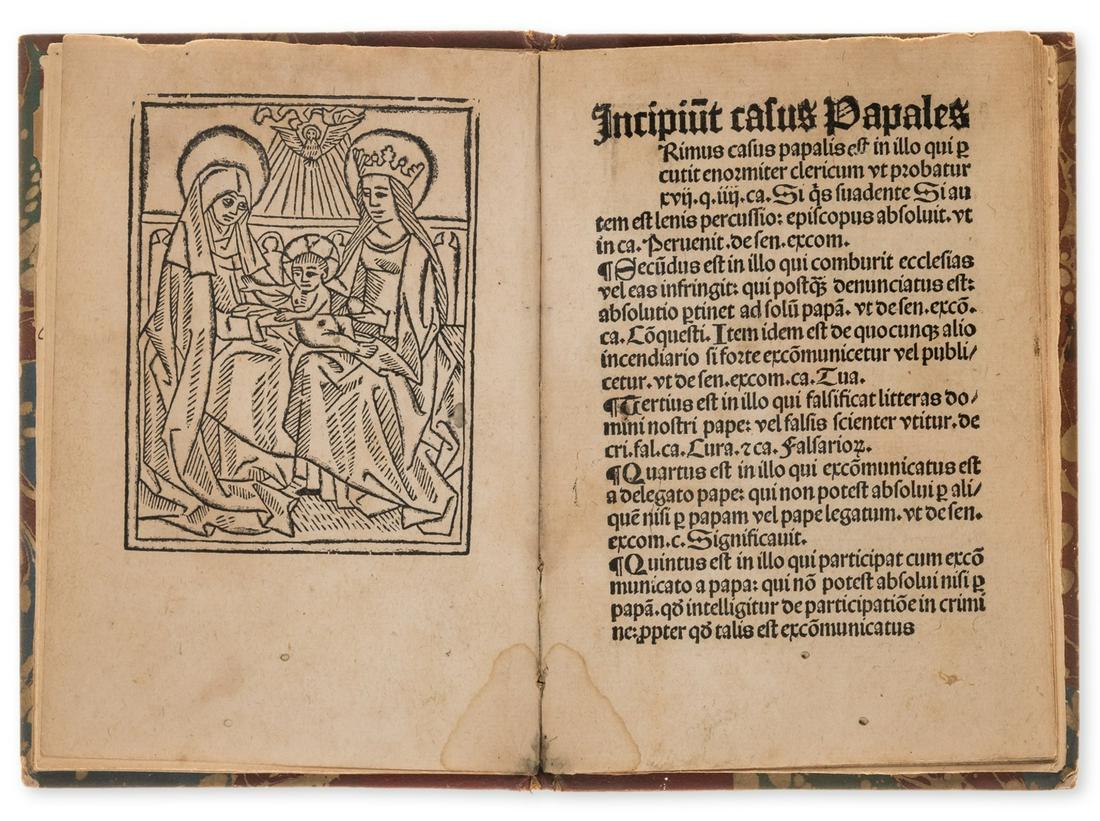 Incipiūt casus Papales
Rimus casus papalis est in illo qui ꝑ
cutit enormiter clericum vt probatur
xvij.q.iiij.ca. Si q̄s suadente Si au
tem est lenis percussio: episcopus absoluit. vt
in ca. Peruenit. de sen. excom.
¶Secūdus est in illo qui comburit ecclesias
vel eas infringit: qui postq̄ȝ denunciatus est:
absolutio ꝑtinet ad solū papā. vt de sen. excō.
ca. Cōquesti. Item idem est de quocunqȝ alio
incendiario si forte excōmunicetur vel publi/
cetur. vt de sen. excom. ca. Tua.
¶Tertius est in illo qui falsificat litteras do/
mini nostri pape: vel falsis scienter vtitur. de
cri. fal. ca. Cura. ⁊ ca. Falsarioꝝ.
¶Quartus est in illo qui excōmunicatus est
a delegato pape: qui non potest absolui ꝑ ali/
quē nisi ꝑ papam vel pape legatum. vt de sen.
excom. c. Significauit.
¶Quintus est in illo qui participat cum excō
municato a papa: qui nō potest absolui nisi ꝑ
papā. qđ intelligitur de participatiōe in crimi
ne: ꝓpter qđ talis est excōmunicatus